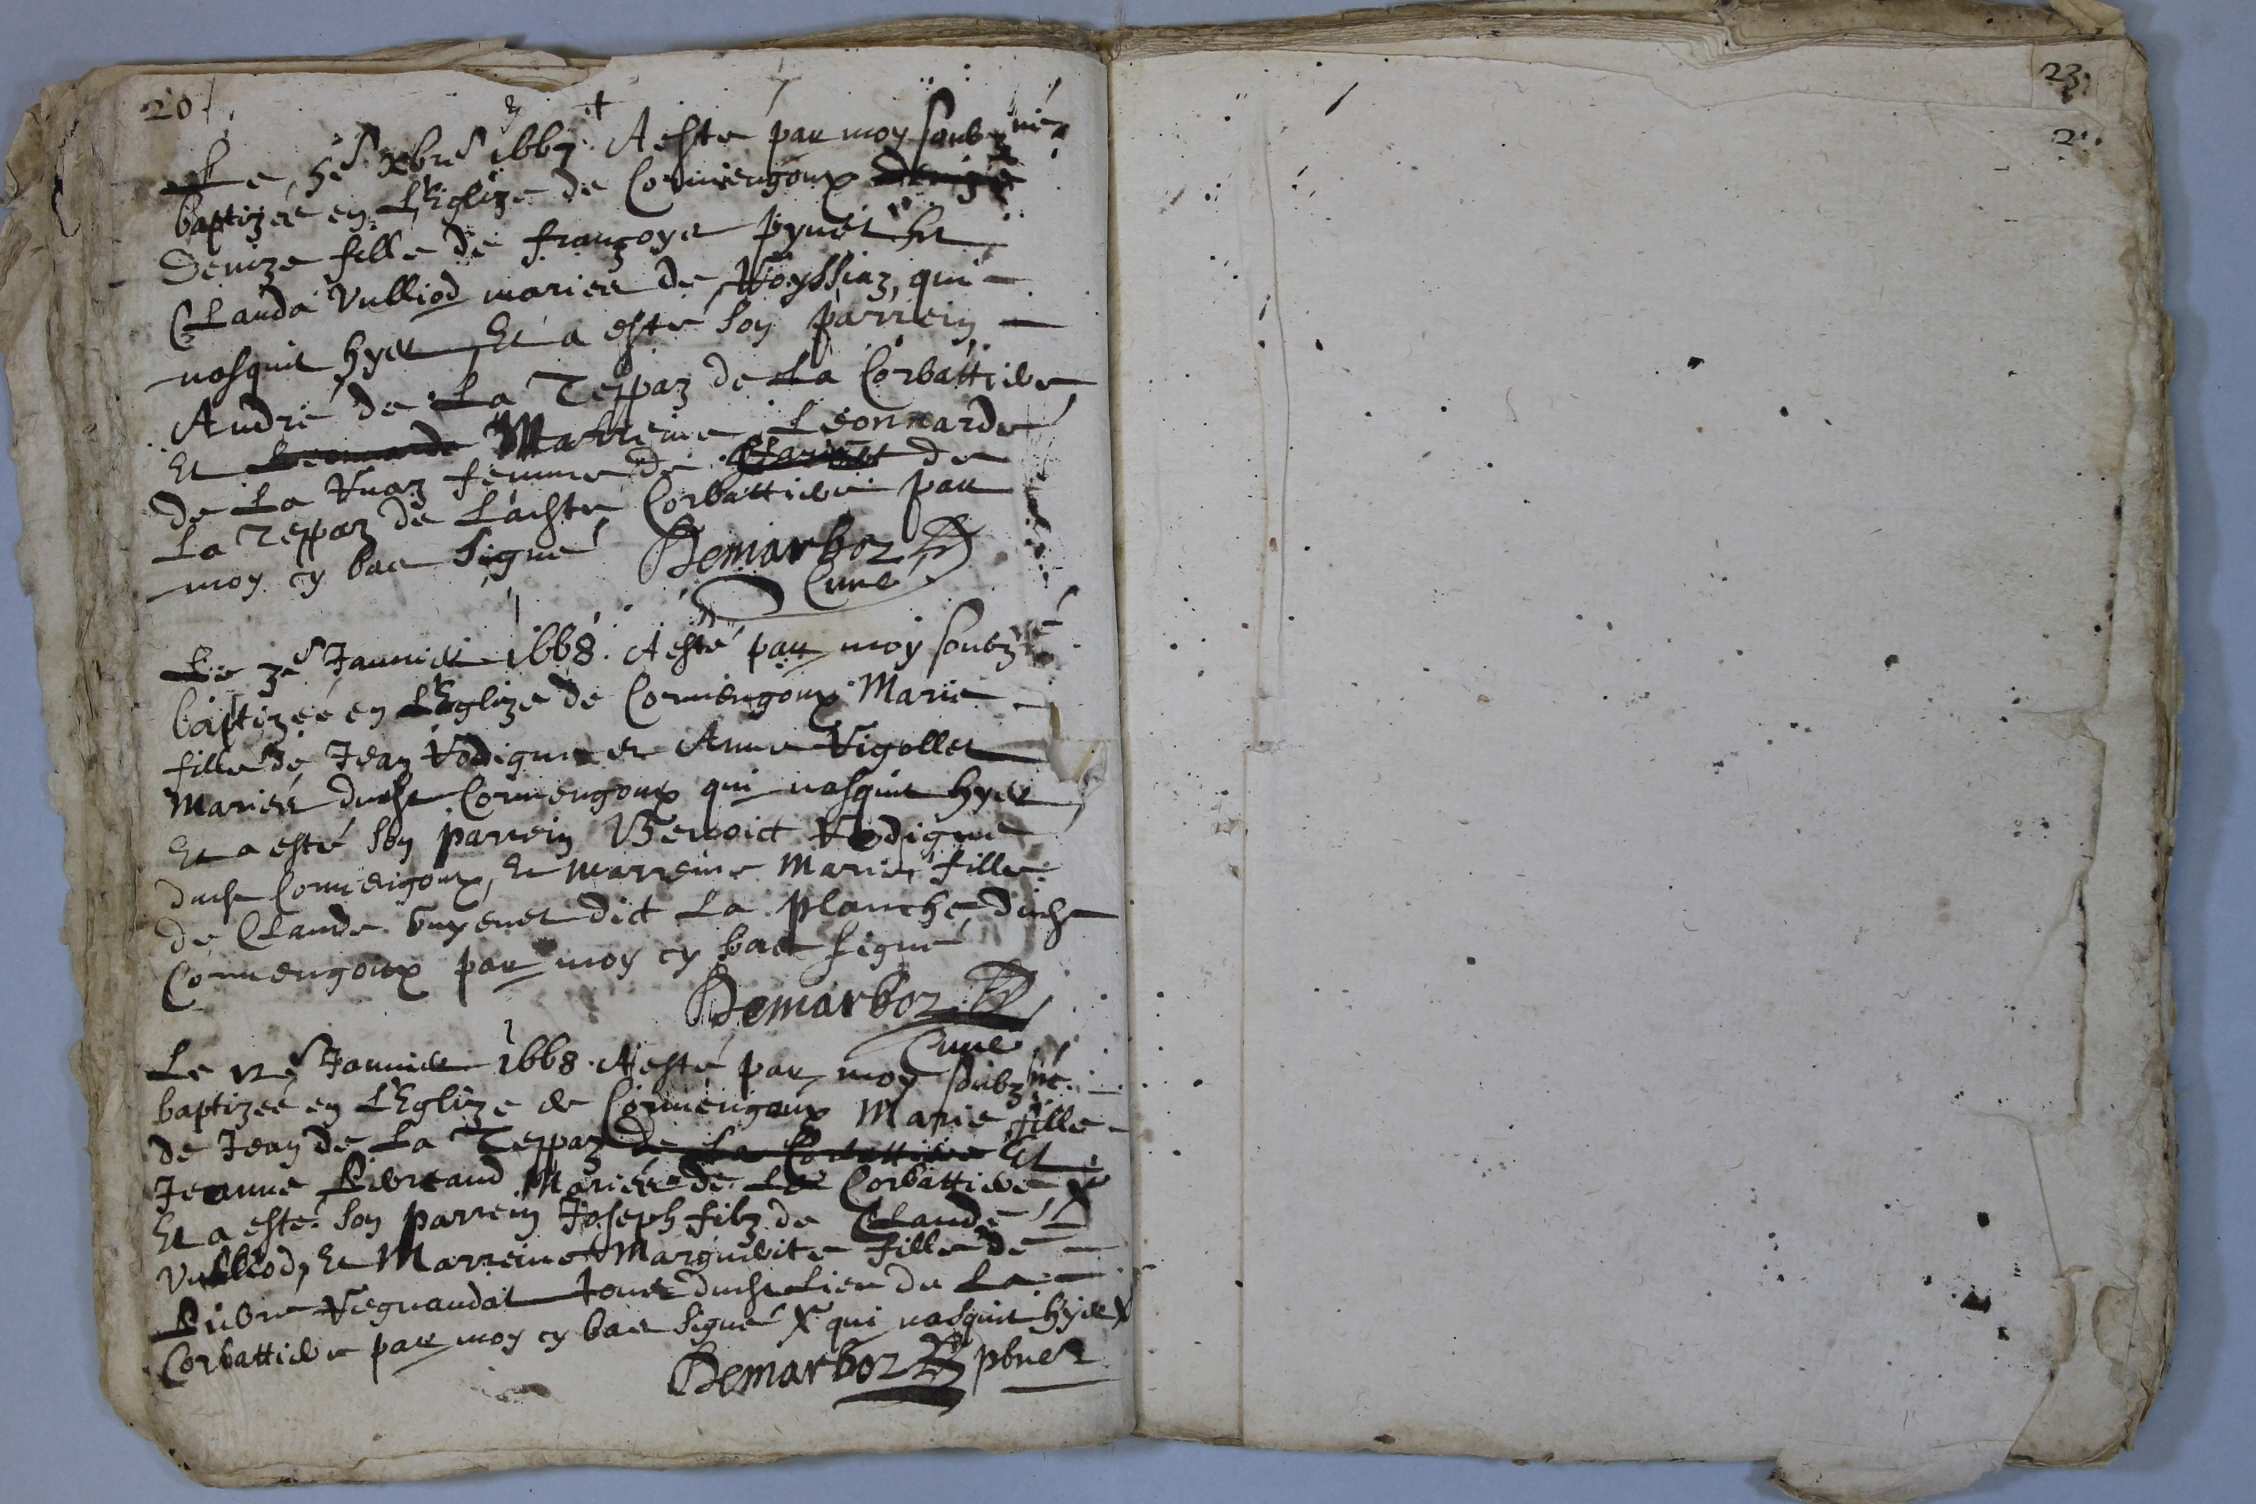 20
Le 5e xbre 1667 A esté par moy soubz né
baptizée en L'Eglize de Cormengoux Denize
Denize fille de françoys pynet Et
Clauda Vulliod mariés de Woyssiaz, qui
nasquit hyer, Et a esté son parrein
André de La Teppaz de La Corbattiere
Et Leonarde Marreine Leonnarde
de La Vuaz femme de de
La Teppaz de Ladte Corbattiere par
moy cy bas signé Demarboz
Curé
Le 3e Januier 1668. A esté par moy soubz né
baptizeé en L'Eglize de Cormengoux Marie
fille de Jean Vodigue et Anne Vigollet
Mariés dudt Cormengoux qui nasquit hyer
Et a esté son parrein Benoict Vodigue
dudt Cormengoux, Et marreine Marie fille
de Claude buyenet dict La planche dudt
Cormengoux par moy cy bas signé
Demarboz
Curé
Le 12e Januier 1668. A esté par moy soubz né
baptizeé en L'Eglize de Cormengoux Marie fille
de Jean de La Teppaz de La Corbattiere Et
Jeanne Mariés de La Corbattiere X
Et a esté son parrein Joseph filz de Claude
Vulliod, Et Marreine Marguerite fille de
dudt Lieu de La
Corbattiere par moy cy bas signé X qui nasquit hyer X
Demarboz pbre
23
2